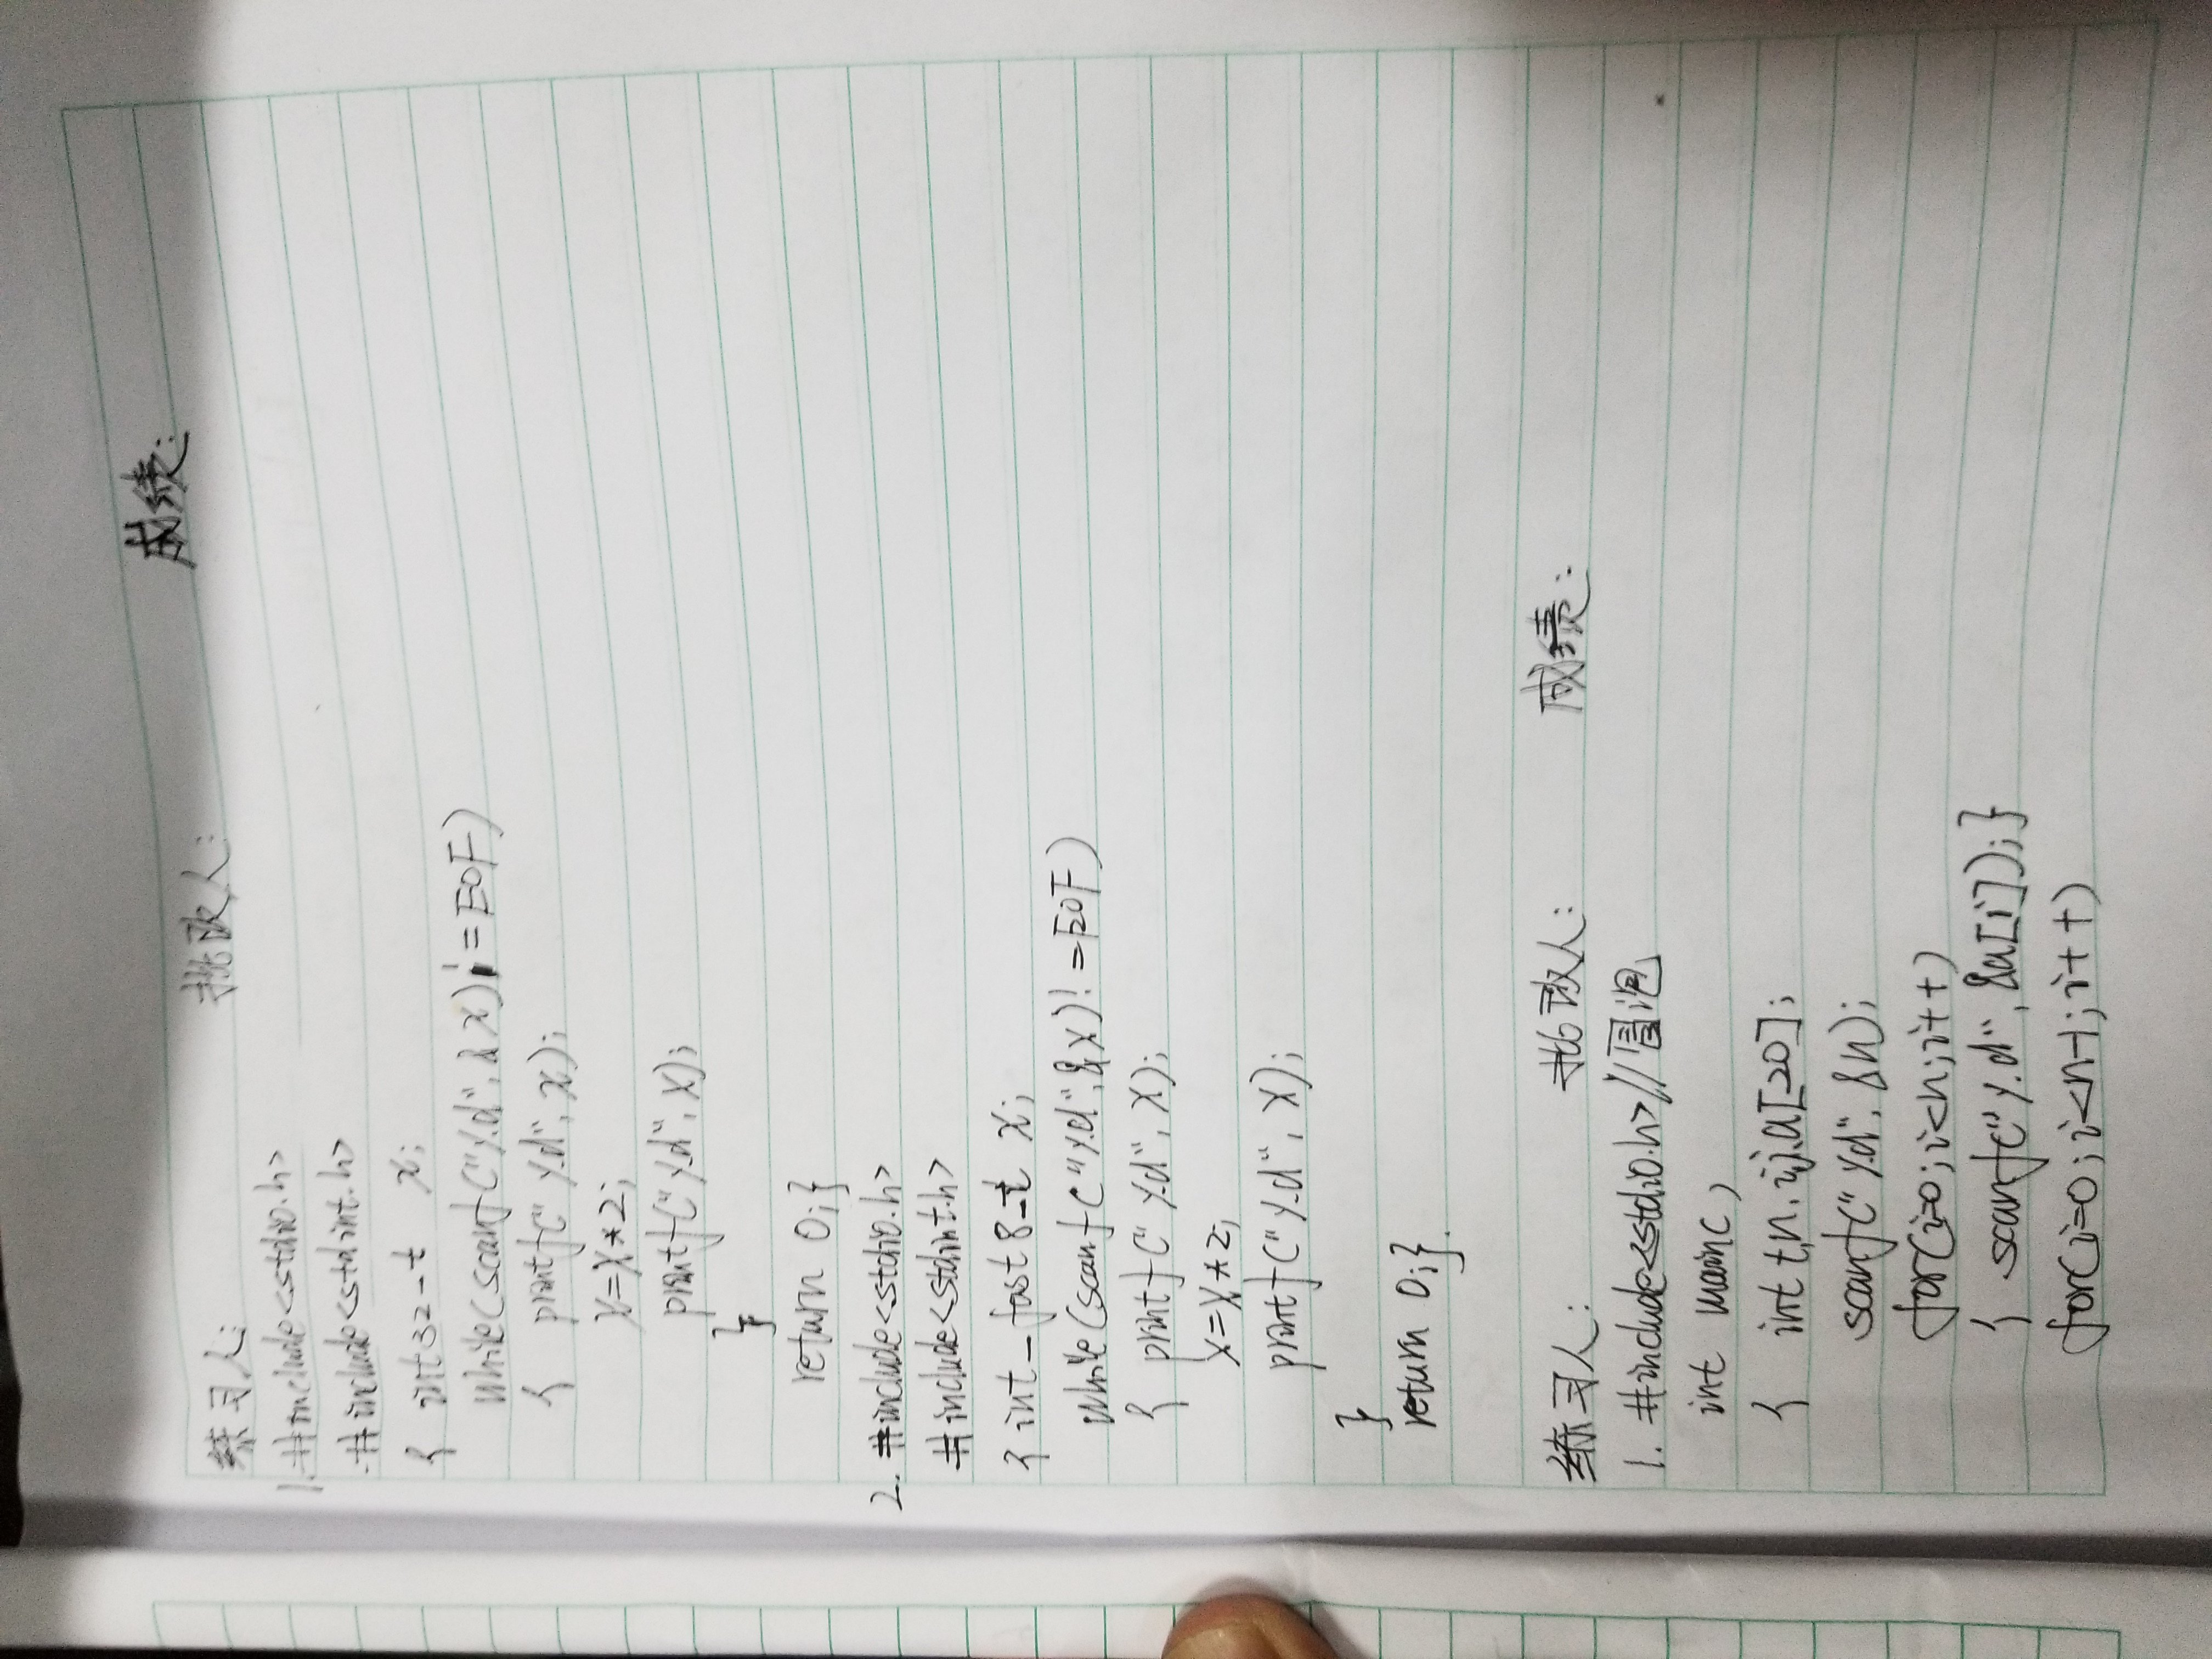 成绩:
练习人: 批改人:
1. #include<stdio.h>
#include<stdint.h>
{ int32_t x;
while(scanf("%d",&x)!=EOF)
{ printf("%d",x);
x=x*2;
printf("%d",x);
}
return 0;}
2. #include<stdio.h>
#include<stdint.h>
{ int_fast8_t x;
while(scanf("%d",&x)!=EOF)
{ printf("%d",x);
x=x*2;
printf("%d",x);
}
return 0;}
练习人: 批改人: 成绩:
1. #include<stdio.h>//冒泡
int main()
{ int t,n,i,j,a[20];
scanf("%d",&n);
for(i=0;i<n;i++)
{ scanf("%d",&a[i]);}
for(i=0;i<n-1;i++)